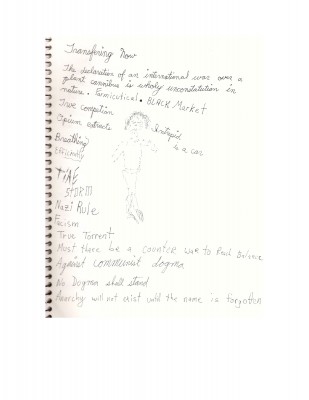 Transfering Now
The declaration of an international war over a
plant cannibus is wholy unconstatution in
nature. Farmicutical. BLACK Market
True compation
Opium extracts
Intrepid
is a car
Breathing
Efficiently
TIME
StORM
Nazi Rule
Facism
True Torrent
Must there be a counter war to find Balance
Against communist dogma
No Dogma shall stand
Anarchy will not exist until the name is forgotten